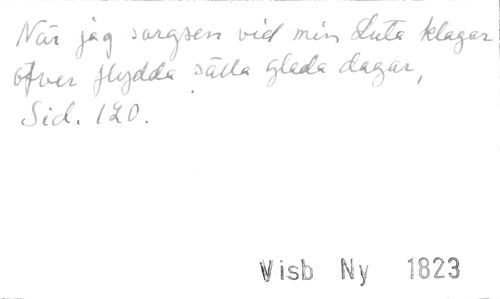 När jag sorgsen vid min Luta klagar
öfver flydda sälla glada dagar,
Sid. 120.
Visb Ny 1823